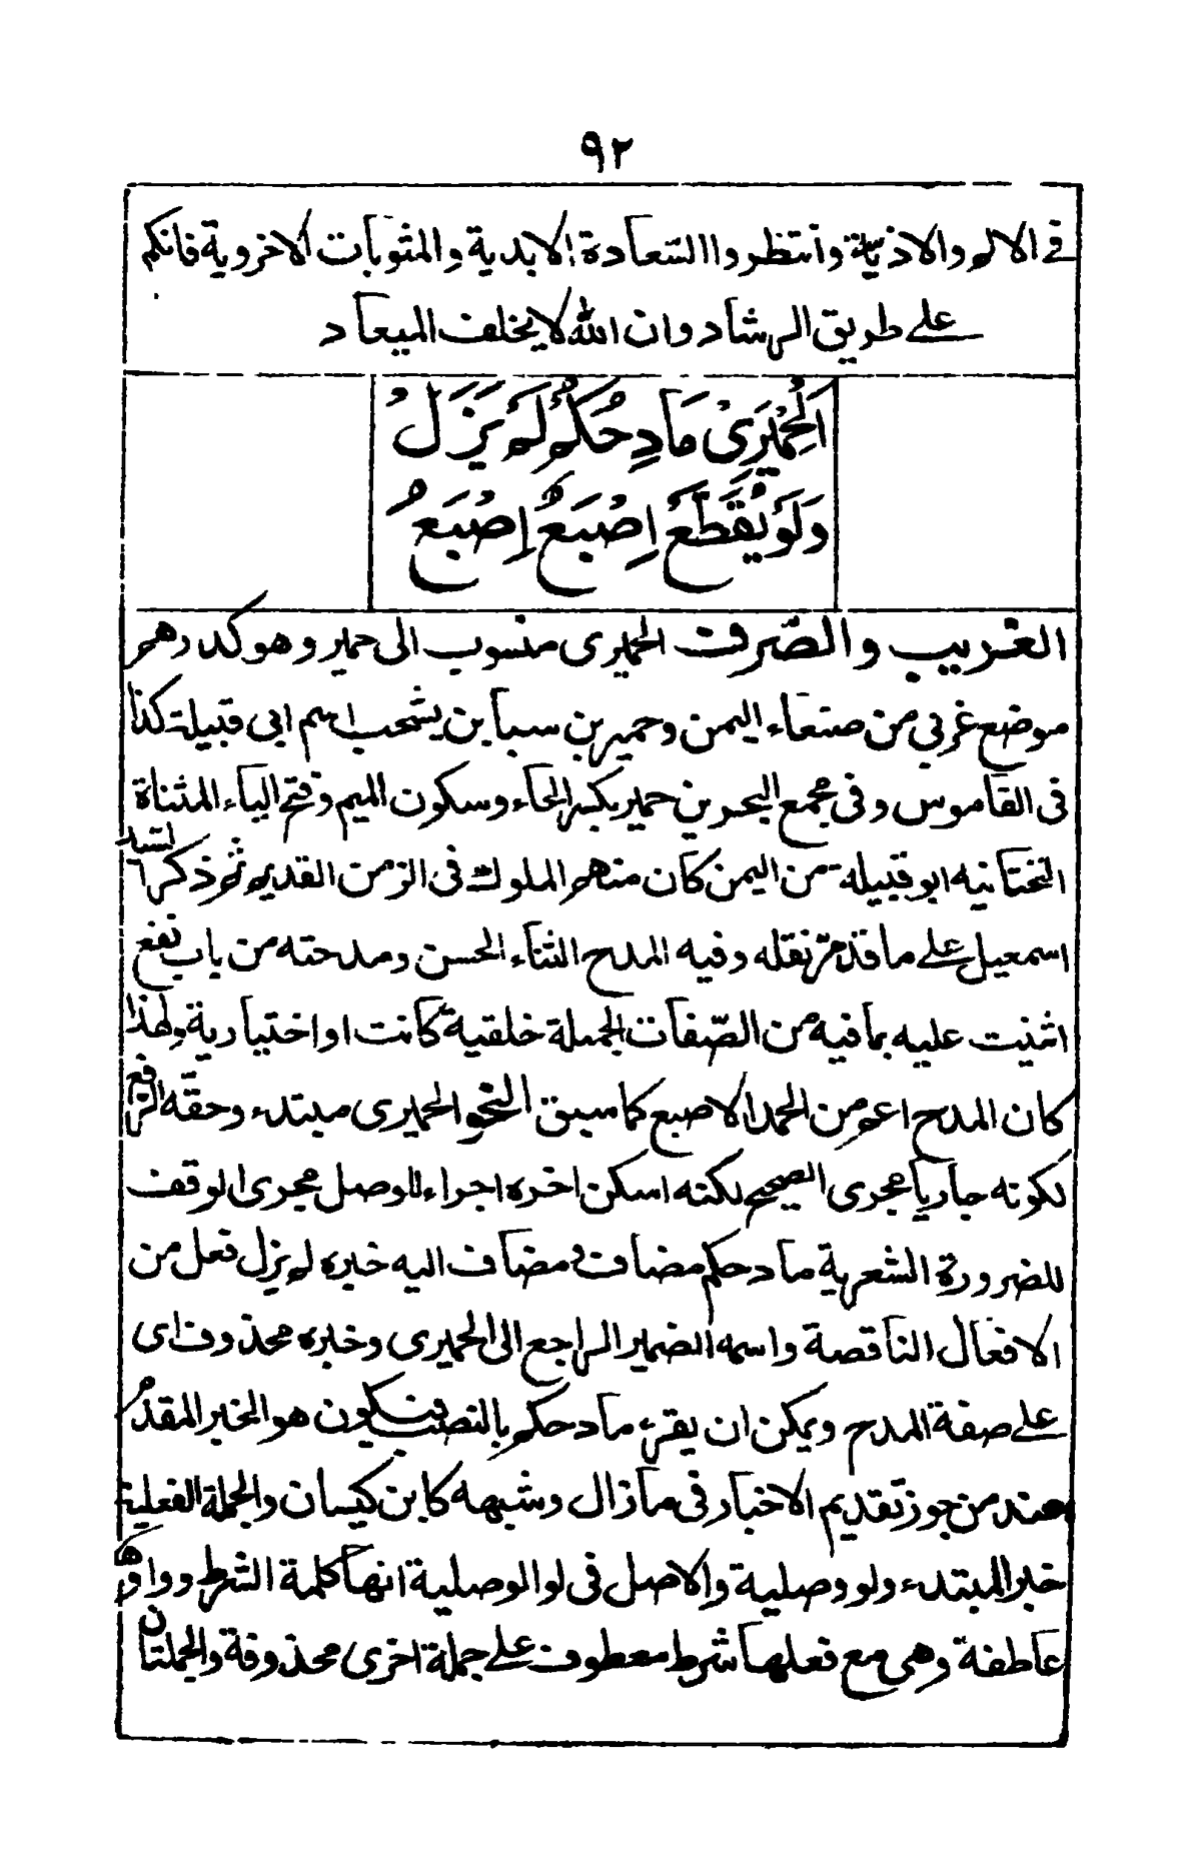 ٩٢
فى الالم والاذيّة وانتظروا السّعادة الابدية والمثوبات الاخروية فانكم
على طريق الرشاد وان الله لا يخلف الميعاد
اَلْحِمْيَرِىْ مَادِحُكُمْ لَمْ يَزَلْ
وَلَوْ يُقَطَّعْ اِصْبَعٌ اِصْبَعُ
الغريب والصّرف الحميرى منسوب الى حمير وهو كدرهم
موضع غربي من صنعاء اليمن وحمير بن سبا بن يشحب اسم ابى قبيلة كذا
فى القاموس وفى مجمع البحرين حمير بكسر الحاء وسكون الميم وفتح الياء المثناة
التحتانيه ابو قبيلة من اليمن كان منهم الملوك فى الزمن القديم ثم ذكر السّيد
اسمعيل على ما قد مرّ نقله وفيه المدح الثناء الحسن ومدحته من باب نفع
اثنيت عليه بما فيه من الصّفات الجميلة خلقية كانت او اختيارية ولهذا
كان المدح اعم من الحمد الاصبع كما سبق النحو الحميرى مبتدء وحقّه الرّفع
لكونه جاريا مجرى الصحيح لكنه اسكن اخره اجراء للوصل مجرى الوقف
للضرورة الشعرية مادحكم مضاف ومضاف اليه خبره لم يزل فعل من
الافعال الناقصة واسمه الضمير الراجع الى الحميرى وخبره محذوف اى
على صفة المدح ويمكن ان يقرء مادحكم بالنصب فيكون هو الخبر المقدم
عند من جوز تقديم الاخبار فى مازال وشبهه كابن كيسان والجملة الفعلية
خبر المبتدء ولو وصلية والاصل فى لو الوصلية انها كلمة الشرط وواوها
عاطفة وهى مع فعلها شرط معطوف على جملة اخرى محذوفة والجملتان